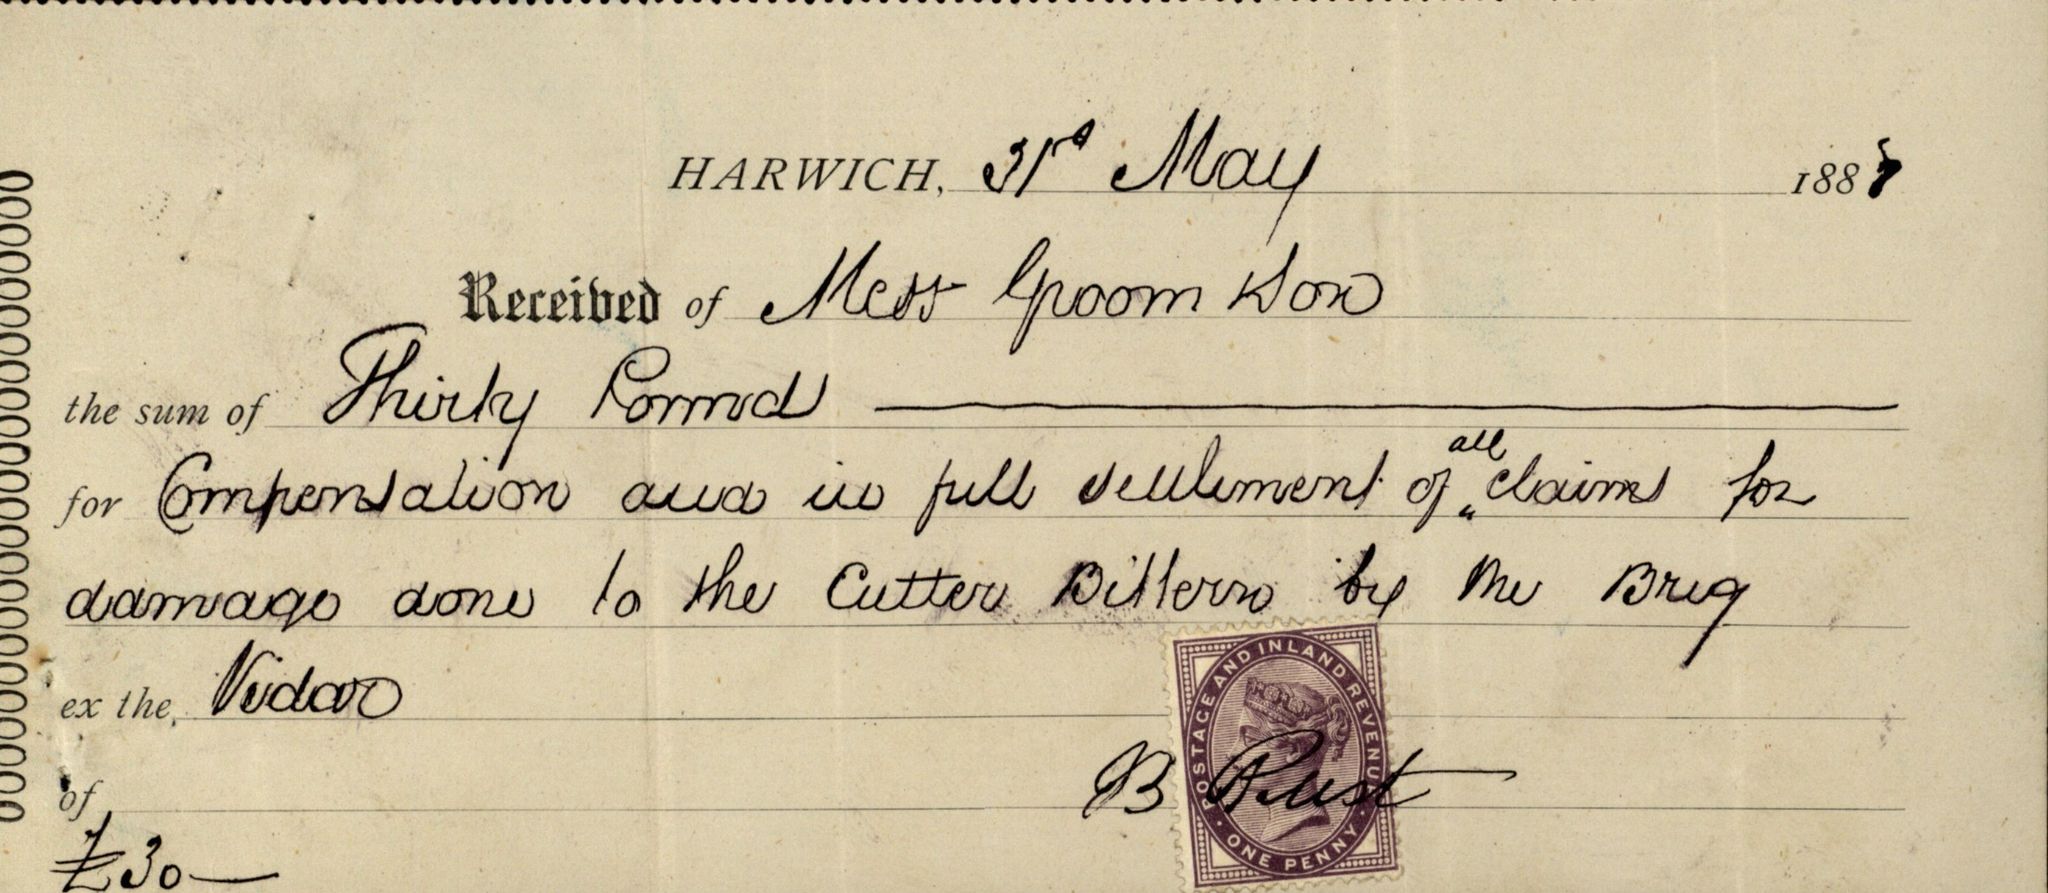 HARWICH, 31rd May 1887
Received of Mess Groom Son
the sum of Thirty Pound
for Compensation and in full settlement of all claims for
damage done to the Cutter Bittern by the Brig
ex the, Vidar
POSTAGE AND INLAND REVENUE
ONE PENNY
of B Pust
£30